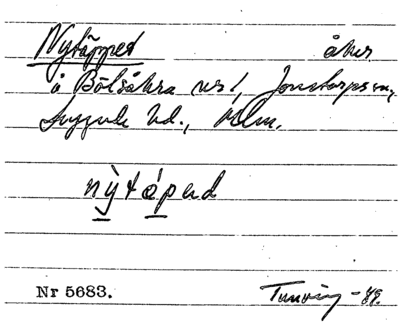 Nytäpped åker
å Bölsåkra nr 1, Jonstorps sn,
Luggude hd., Mlm.
nỳtápεd
Nr 5683.
Tunving -49.